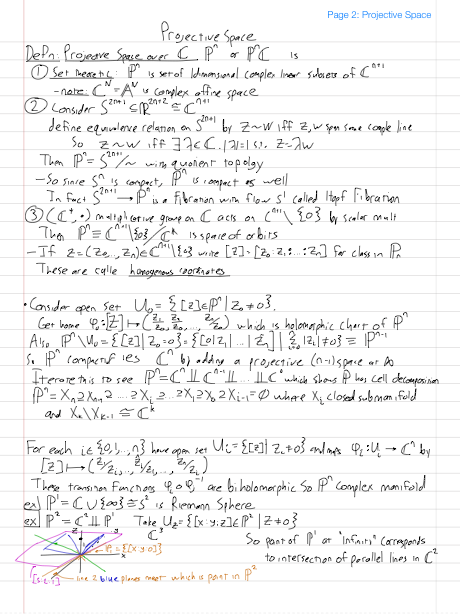 Page 2: Projective Space
Projective Space
Defn: Projective Space over ℂ ℙⁿ or ℙⁿℂ is
① Set theoretic: ℙⁿ is set of 1 dimensional complex linear subsets of ℂⁿ⁺¹
- note: ℂᴺ = 𝔸ᴺ is complex affine space
② Consider S²ⁿ⁺¹ ⊆ ℝ²ⁿ⁺² ≅ ℂⁿ⁺¹
define equivalence relation on S²ⁿ⁺¹ by z~w iff z,w span same complex line
So z~w iff ∃λ∈ℂ. |λ|=1 s.t. z=λw
Then ℙⁿ = S²ⁿ⁺¹/~ with quotient topology
- So since Sⁿ is compact, ℙⁿ is compact as well
In fact S²ⁿ⁺¹ → ℙⁿ is a Fibration with S¹ called Hopf Fibration
③ (ℂ*, ·) multiplicative group on ℂ acts on ℂⁿ⁺¹\{0} by scalar mult
Then ℙⁿ ≡ ℂⁿ⁺¹\{0}/ℂ* is space of orbits
- If z=(z₀,...,zₙ)∈ℂⁿ⁺¹\{0} write [z]=[z₀:z₁:...:zₙ] for class in ℙₙ
These are calle homogenous coordinates
• Consider open set U₀ = {[z]∈ℙⁿ | z₀≠0}.
Get home φ₀:[z]↦(z₁/z₀, z₂/z₀, ..., zₙ/z₀) which is holomorphic chart of ℙⁿ
Also ℙⁿ\U₀ = {[z] | z₀=0} = {[0|z₁|...|zₙ] | Σ|zᵢ|≠0} ≡ ℙⁿ⁻¹
So ℙⁿ compactifies ℂⁿ by adding a projective (n-1)space at ∞
Iterate this to see ℙⁿ=ℂⁿ⨿ℂⁿ⁻¹⨿...⨿ℂ⁰ which shows ℙ has cell decomposition
ℙⁿ = Xₙ⊇Xₙ₋₁⊇...⊇Xᵢ⊇...⊇X₁⊇X₀⊇X₋₁=∅ where Xᵢ closed submanifold
and Xₖ\Xₖ₋₁ ≅ ℂᵏ
For each i∈{0,1,...,n} have open set Uᵢ={[z] | zᵢ≠0} and maps φᵢ:Uᵢ→ℂⁿ by
[z]↦(z₀/zᵢ, z₁/zᵢ, ..., zₙ/zᵢ)
These transition functions φᵢ∘φⱼ⁻¹ are biholomorphic So ℙⁿ complex manifold
ex) ℙ¹=ℂ∪{∞}≅S² is Riemann Sphere
ex) ℙ²=ℂ²⨿ℙ¹ Take U_z={[x:y:z]∈ℙ² | z≠0}
ℂ³
So point of ℙ¹ at "infinity" corresponds
to intersection of parallel lines in ℂ²
z
y
ℙ¹={[x:y:0]}
line 2 blue planes meet which is point in ℙ²